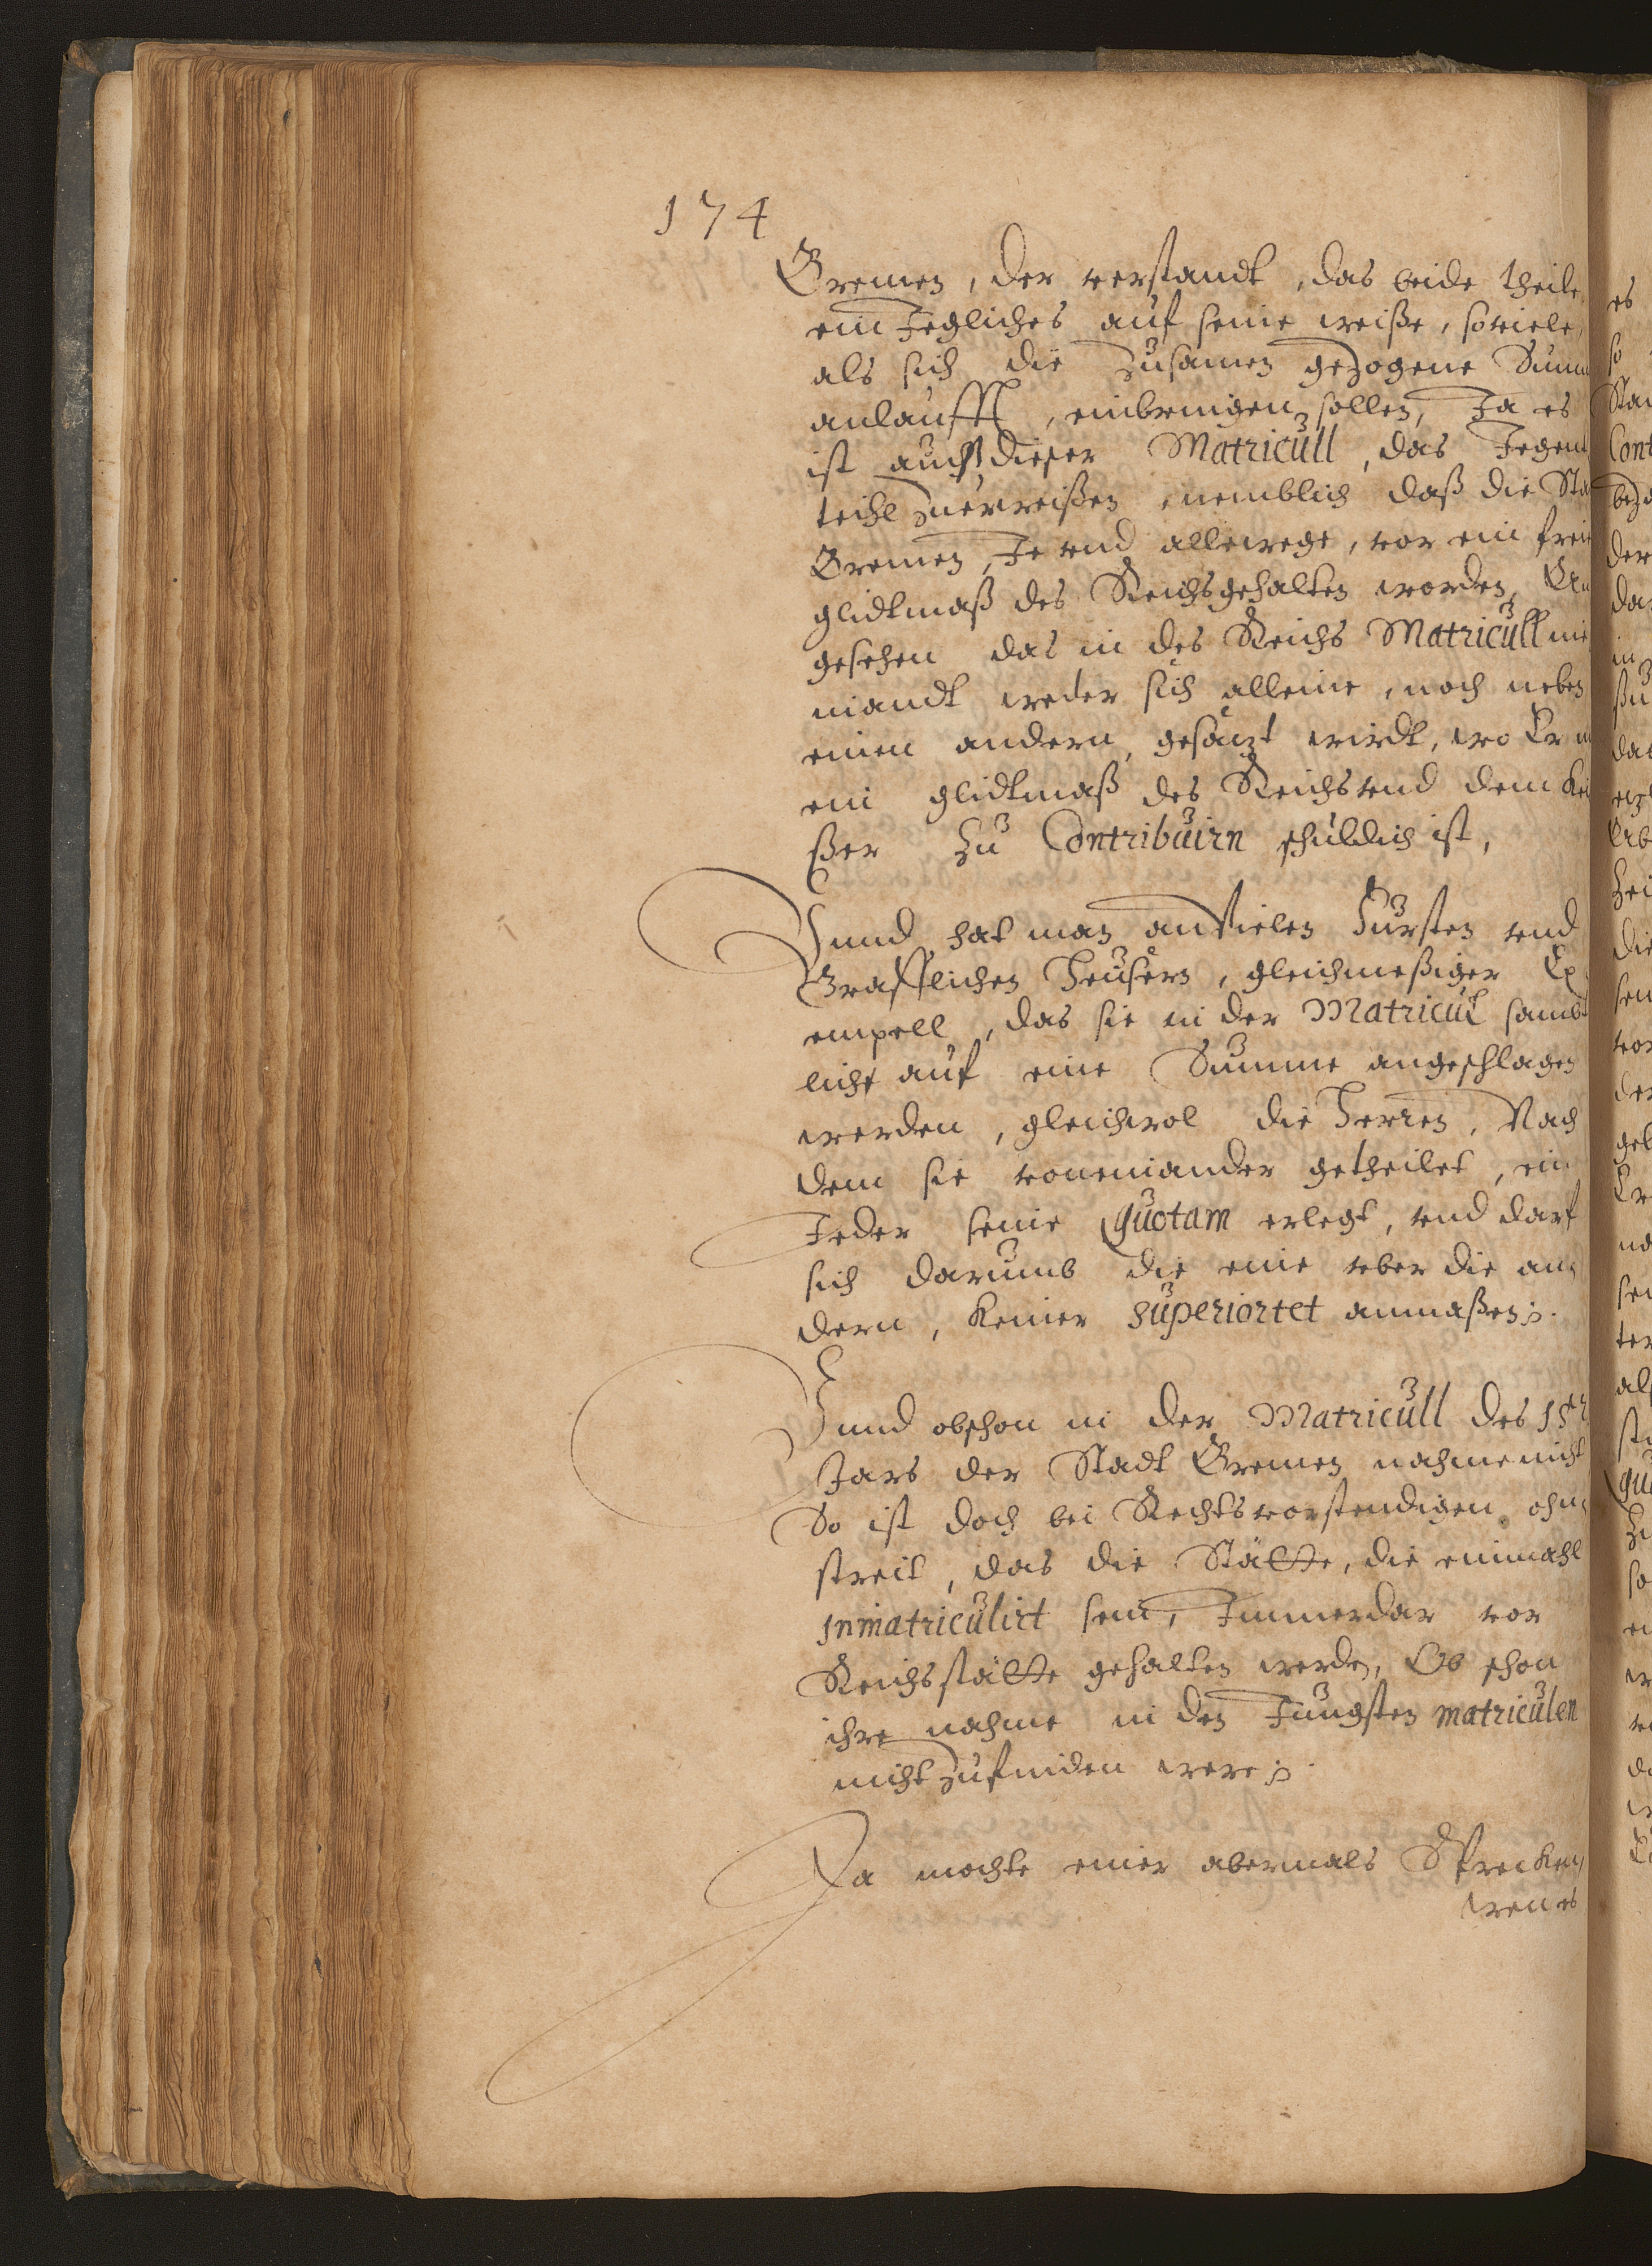 174
Bremen, der verstandt, das beide theile,
ein Jegliches auf seine weiße, soviele,
als sich die Zusamen gezogene Sum
anlaufft, einbringen sollen, Ja es
ist auch dieser Matricull, das Jegen
teihl Zuerweißen, nemblich daß die Sta
Bremen, Je vnd allewege, vor ein frei
glidtmaß des Reichs gehalten worden,
gesehen das in des Reichs Matricull nie
mandt weder sich alleine, noch neben
einen andern, gesätzt wirdt, wo Er
ein glidtmaß des Reichs vnd dem Kei
ßer Zu Contribuirn schuldich ist,
Vnnd hat man an vielen Fursten vnd
Grafflichen Heusern, gleichmeßiger Ex
empell, das sie in der Matricul samb
licht auf eine Summe angeschlagen
werden, gleichwol die Herren, Nach
dem sie voneinander getheilet, ein
Jeder seine Quotam erlegt, vnd darf
sich darumb die eine vber die an
dern, keiner Superiortet anmaßen.
Vnnd obschon in der Matricull des
Jars der Stadt Bremen nahme nicht
So ist doch bei Rechtsvorstendigen ohn
streit, das die Stätte, die einmahl
Inmatriculirt sein, Immerdar vor
Reichsstätte gehalten werden, Ob schon
ihre nahme in den Jungsten matriculen
nicht Zufinden were.
Da mochte einer abermals Sprecken,
wen es
es
so
Sta
Cont
bezo
der
das
in